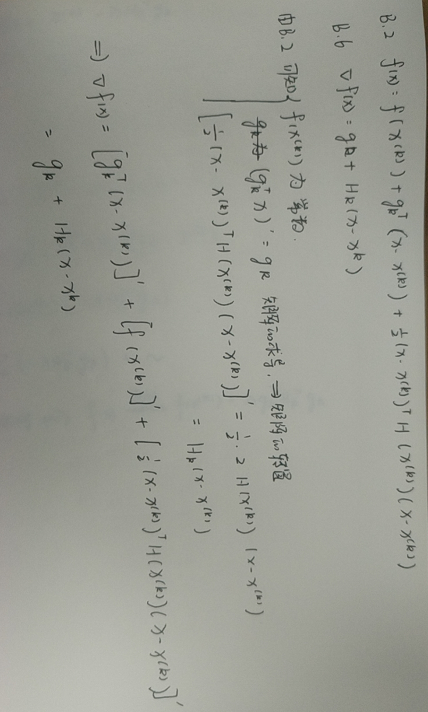 B.2 f(x) = f(x^(k)) + g_k^T (x - x^(k)) + 1/2 (x - x^(k))^T H(x^(k)) (x - x^(k))
B.6 ∇f(x) = g_k + H_k(x - x_k)
由B.2 可知 f(x^(k)) 为常数.
(g_k^T x)' = g_k 矩阵的求导. ⇒ 矩阵的转置
[1/2 (x - x^(k))^T H(x^(k)) (x - x^(k))]' = 1/2 · 2 H(x^(k)) (x - x^(k))
= H_k (x - x^(k))
⇒ ∇f(x) = [g_k^T (x - x^(k))]' + [f(x^(k))]' + [1/2 (x - x^(k))^T H(x^(k)) (x - x^(k))]'
= g_k + H_k (x - x_k)